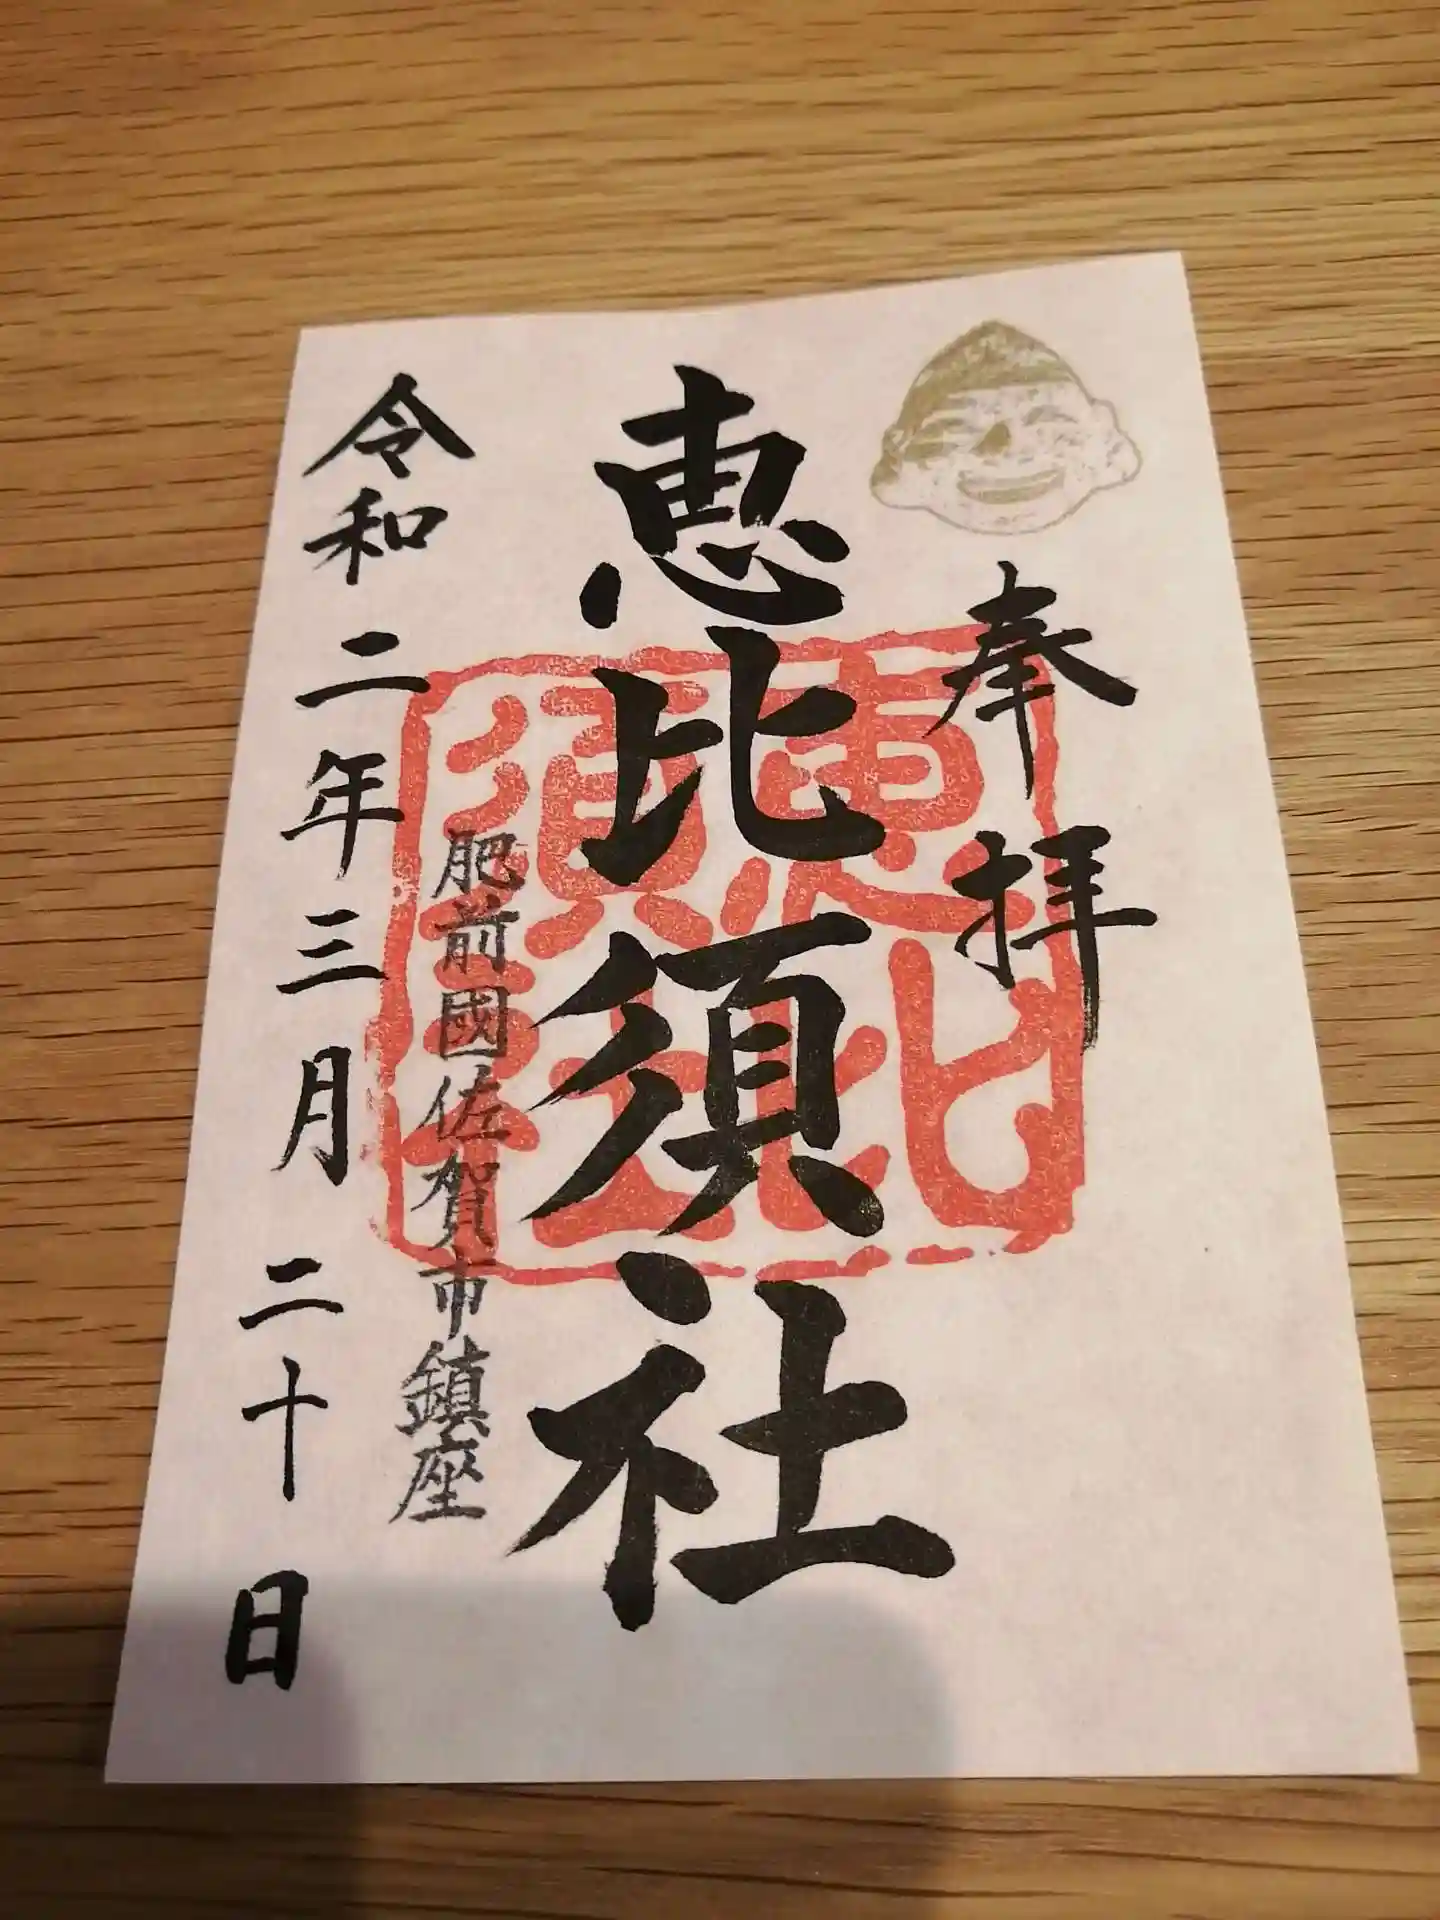 奉拝
恵比須社
恵比須社
肥前國佐賀市鎮座
令和二年三月二十日